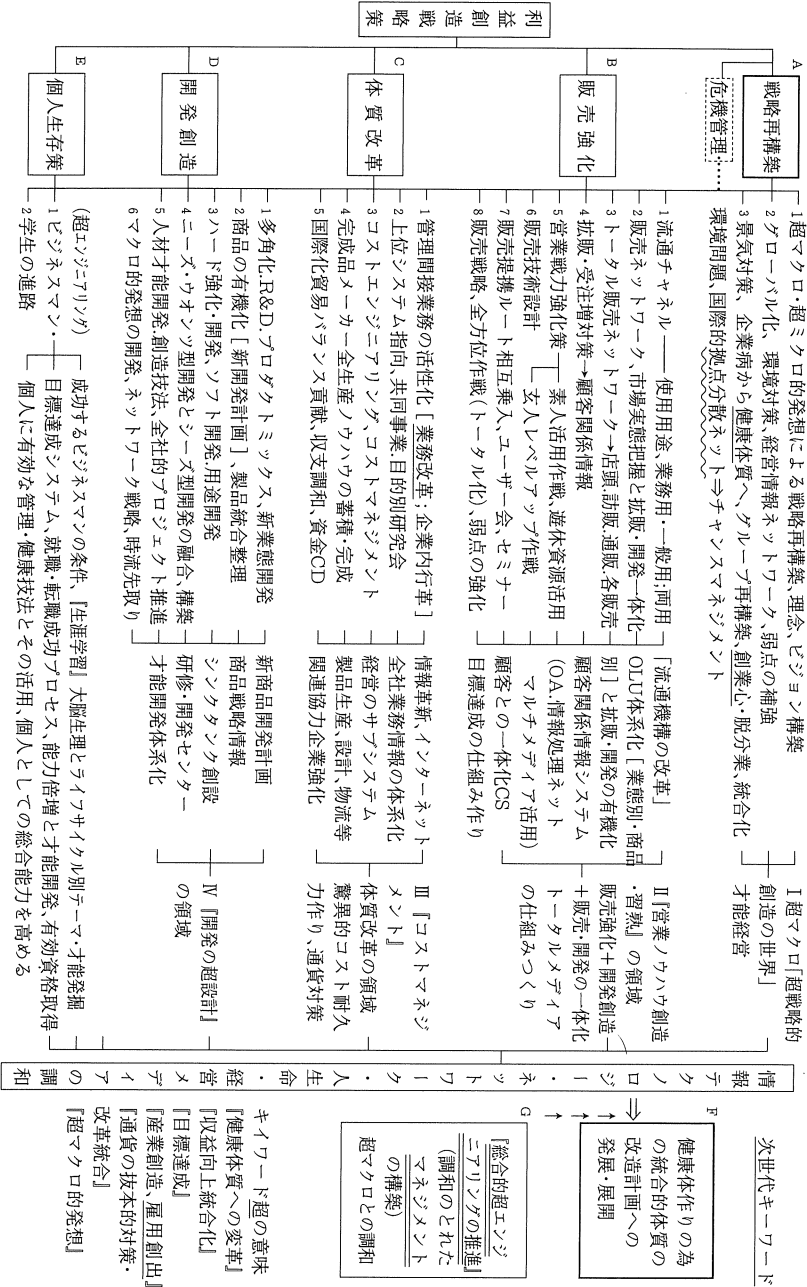 利益創造戦略策
A
戦略再構築
危機管理
1超マクロ・超ミクロ的発想による戦略再構築、理念、ビジョン構築
2グローバル化、環境対策、経営情報ネットワーク、弱点の補強
3景気対策、企業病から健康体質へ、グループ再構築、創業心・脱分業、統合化
環境問題、国際的拠点分散ネット⇒チャンスマネジメント
Ⅰ超マクロ「超戦略的
創造の世界」
才能経営
B
販売強化
1流通チャネル――使用用途、業務用・一般用;両用
2販売ネットワーク、市場実態把握と拡販・開発一体化
3トータル販売ネットワーク→店頭.訪販.通販.各販売
4拡販・受注増対策→顧客関係情報
5営業戦力強化策
素人活用作戦、遊休資源活用
玄人レベルアップ作戦
6販売技術設計
7販売提携ルート相互乗入、ユーザー会、セミナー
8販売戦略、全方位作戦(トータル化)、弱点の強化
「流通機構の改革」
OLU体系化[業態別・商品
別]と拡販・開発の有機化
顧客関係情報システム
(OA.情報処理ネット
マルチメディア活用)
顧客との一体化CS
目標達成の仕組み作り
Ⅱ『営業ノウハウ創造
・習熟』の領域
販売強化+開発創造
+販売・開発の一体化
トータルメディア
の仕組みつくり
C
体質改革
1管理間接業務の活性化[業務改革;企業内行革]
2上位システム指向、共同事業.目的別研究会
3コストエンジニアリング、コストマネジメント
4完成品メーカー全生産ノウハウの蓄積・完成
5国際化貿易バランス貢献、収支調和、資金CD
情報革新、インターネット
全社業務情報の体系化
経営のサブシステム
製品生産、設計、物流等
関連協力企業強化
Ⅲ『コストマネジ
メント』
体質改革の領域
驚異的コスト耐久
力作り、通貨対策
D
開発創造
1多角化.R&D.プロダクトミックス、新業態開発
2商品の有機化[新開発計画]、製品統合整理
3ハード強化・開発、ソフト開発.用途開発
4ニーズ・ウオンツ型開発とシーズ型開発の融合、構築
5人材才能開発.創造技法、全社的プロジェクト推進
6マクロ的発想の開発、ネットワーク戦略、時流先取り
新商品開発計画
商品戦略情報
シンクタンク創設
研修・開発センター
才能開発体系化
Ⅳ『開発の超設計』
の領域
E
個人生存策
(超エンジニアリング)
1ビジネスマン・
2学生の進路
成功するビジネスマンの条件、『生涯学習』大脳生理とライフサイクル別テーマ・才能発掘
目標達成システム、就職・転職成功プロセス、能力倍増と才能開発、有効資格取得
個人に有効な管理・健康技法とその活用、個人としての総合能力を高める
情報テクノロジー・ネットワーク・人生命・経営メディアの調和
次世代キーワード
F
健康体作りの為
の統合的体質の
改造計画への
発展・展開
G
『総合的超エンジ
ニアリングの推進』
(調和のとれた
マネジメント
の構築)
超マクロとの調和
キイワード超の意味
『健康体質への変革』
『収益向上統合化』
『目標達成』
『産業創造、雇用創出』
『通貨の抜本的対策・
改革統合』
『超マクロ的発想』